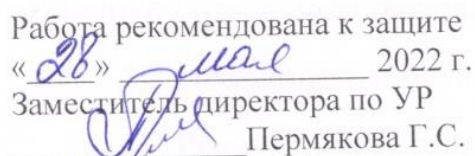 Работа рекомендована к защите
«28» мая 2022 г.
Заместитель директора по УР
Пермякова Г.С.